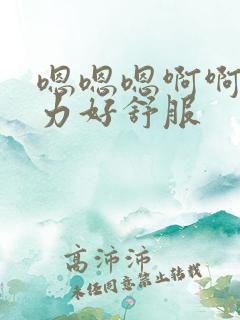 嗯嗯嗯啊啊
力好舒服
高沛沛
未经同意禁止转载